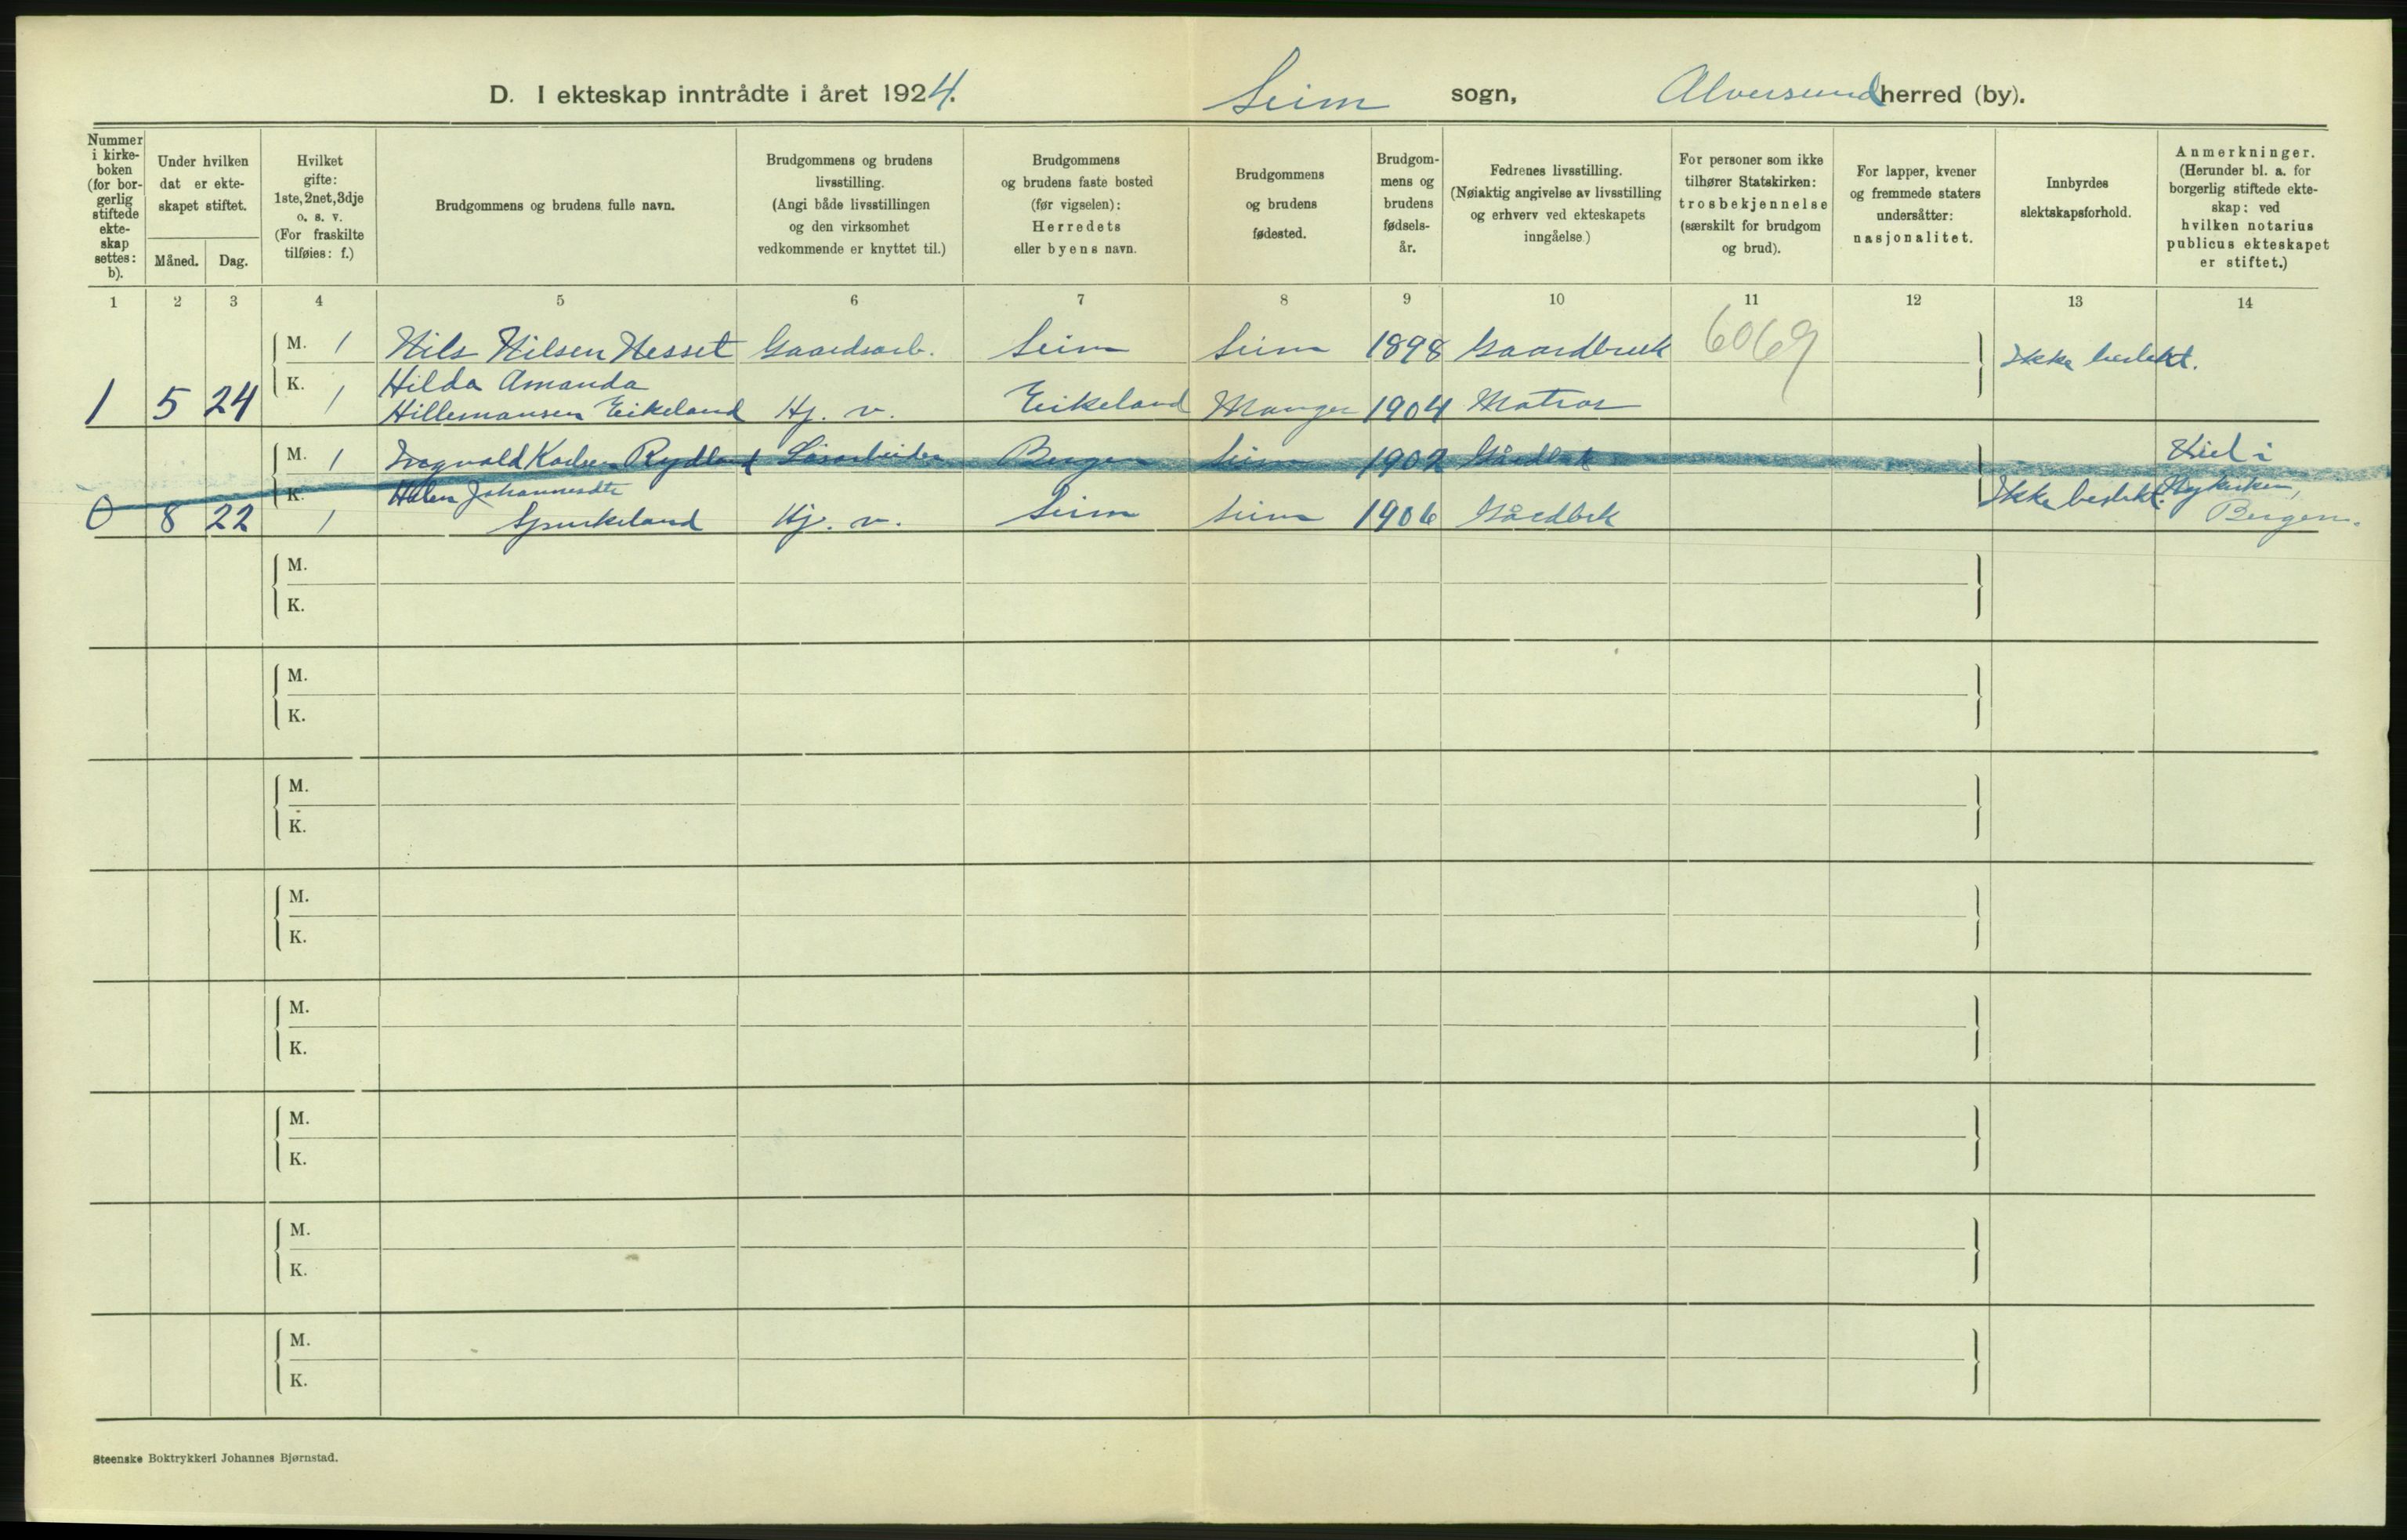 D. I ekteskap inntrådte i året 1924. Seim sogn, Alversund herred (by).
Nummer i kirke- boken (for bor- gerlig stiftede ekte- skap settes: b).
Under hvilken dat er ekte- skapet stiftet.
Måned. Dag.
Hvilket gifte: 1ste, 2net, 3dje o. s. v. (For fraskilte tilføies: f.)
Brudgommens og brudens fulle navn.
Brudgommens og brudens livsstilling. (Angi både livsstillingen og den virksomhet vedkommende er knyttet til.)
Brudgommens og brudens faste bosted (før vigselen): Herredets eller byens navn.
Brudgommens og brudens fødested.
Brudgom- mens og brudens fødsels- år.
Fedrenes livsstilling. (Nøiaktig angivelse av livsstilling og erhverv ved ekteskapets inngåelse.)
For personer som ikke tilhører Statskirken: trosbekjennelse (særskilt for brudgom og brud).
For lapper, kvener og fremmede staters undersåtter: nasjonalitet.
Innbyrdes slektskapsforhold.
Anmerkninger. (Herunder bl. a. for borgerlig stiftede ekte- skap: ved hvilken notarius publicus ekteskapet er stiftet.)
1 2 3 4 5 6 7 8 9 10 11 12 13 14
M. 1 Nils Nilsen Nesset Gaardsarb. Seim Seim 1898 Gaardbruk 6069 Ikke beslekt.
K. Hilda Amanda
1 5 24 1 Hillemansen Eikeland Hj. v. Eikeland Manger 1904 Matros
M. 1 Ingvald Karlsen Rydland Løsarbeider Bergen Seim 1902 Gårdbk Viet i
K. Johannesdtr Ikke beslekt. Nykirken,
0 8 22 1 Spurkeland Hj. v. Seim Seim 1906 Gårdbrk Bergen.
M.
K.
M.
K.
M.
K.
M.
K.
M.
K.
M.
K.
M.
K.
M.
K.
Steenske Boktrykkeri Johannes Bjørnstad.